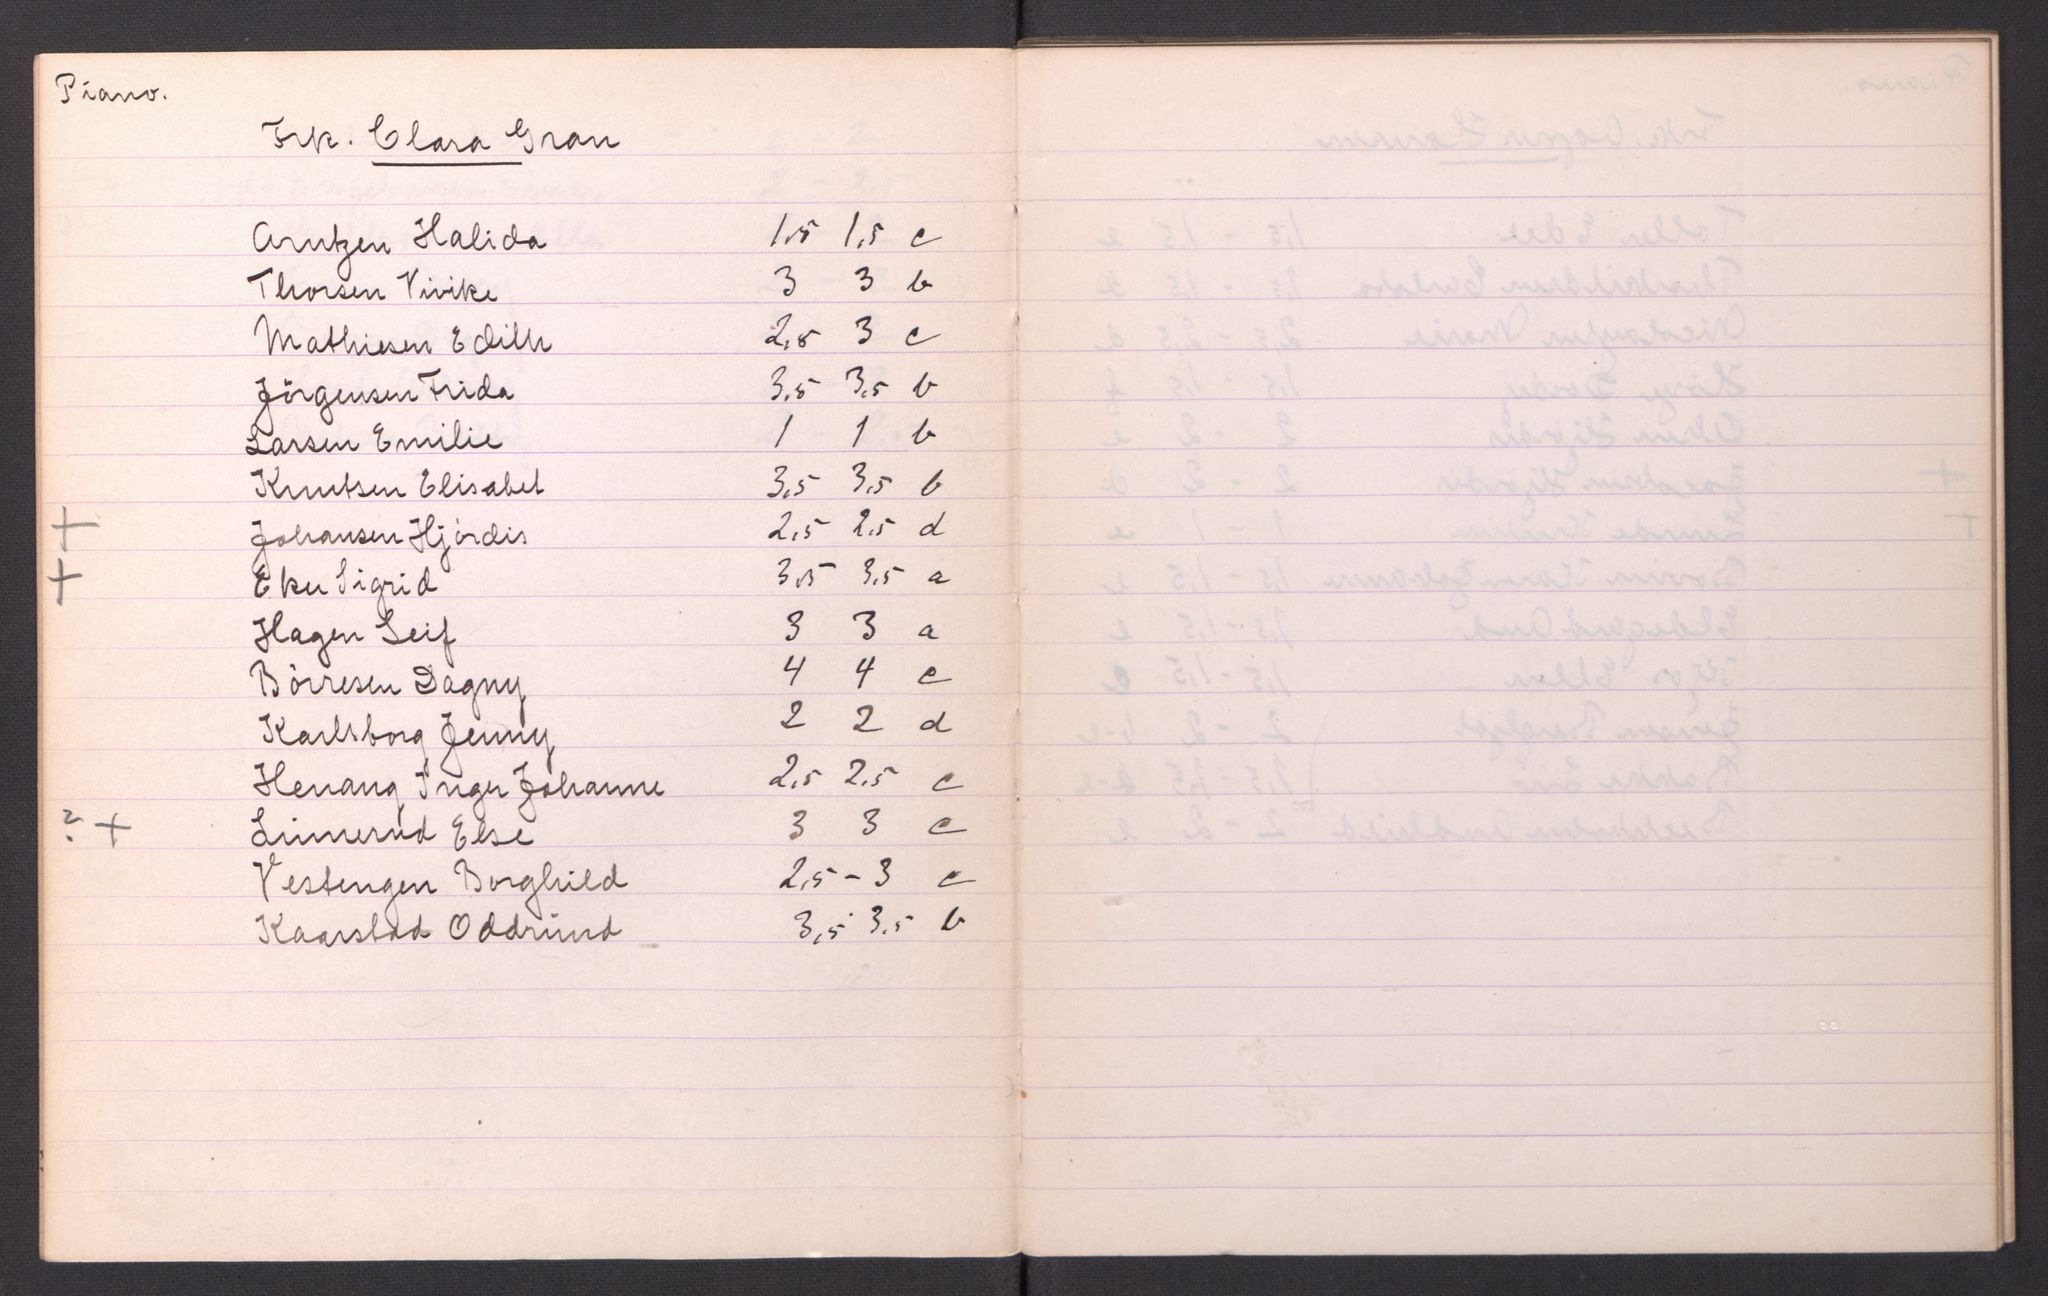 Piano.
Frk. Clara Gran
Arntzen Halida 1,5 1,5 c
Thorsen Vivike 3 3 b
Mathiesen Edith 2,5 3 c
Jörgensen Frida 3,5 3,5 b
Larsen Emilie 1 1 b
Knutsen Elisabet 3,5 3,5 b
+ Johansen Hjördis 2,5 2,5 d
+ Eker Sigrid 3,5 3,5 a
Hagen Leif 3 3 a
Börresen Dagny 4 4 c
Karlsborg Jenny 2 2 d
Henang Inger Johanne 2,5 2,5 c
? + Linnerud Else 3 3 c
Vestengen Borghild 2,5 - 3 c
Kaarstad Oddrund 3,5 3,5 b